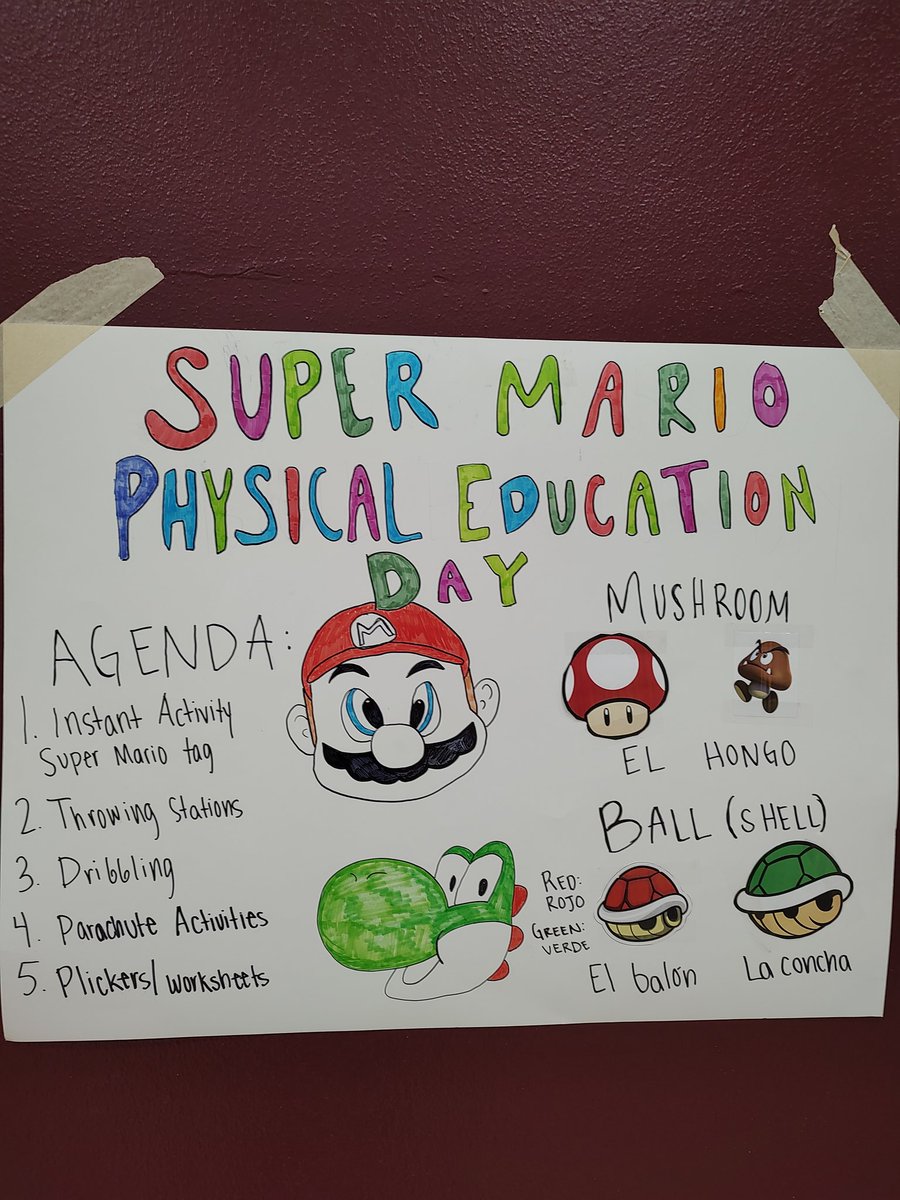 SUPER MARIO
PHYSICAL EDUCATION
DAY
AGENDA:
1. Instant Activity
Super Mario tag
2. Throwing Stations
3. Dribbling
4. Parachute Activities
5. Plickers/worksheets
M
MUSHROOM
EL HONGO
BALL (SHELL)
RED:
ROJO
GREEN:
VERDE
El balón
La concha